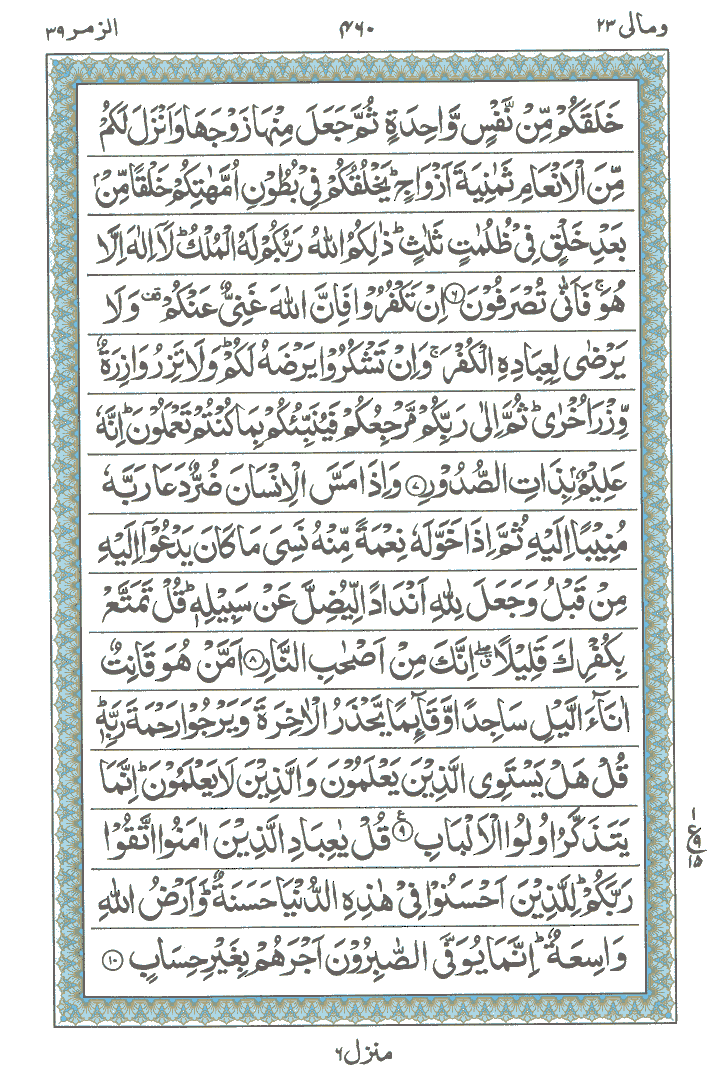 ومالی ۲۳
۴۶۰
الزمر ۳۹
خَلَقَكُمْ مِّنْ نَّفْسٍ وَّاحِدَةٍ ثُمَّ جَعَلَ مِنْهَا زَوْجَهَا وَاَنْزَلَ لَكُمْ
مِّنَ الْاَنْعَامِ ثَمٰنِيَةَ اَزْوَاجٍ ؕ يَخْلُقُكُمْ فِيْ بُطُوْنِ اُمَّهٰتِكُمْ خَلْقًا مِّنْۢ
بَعْدِ خَلْقٍ فِيْ ظُلُمٰتٍ ثَلٰثٍ ؕ ذٰلِكُمُ اللّٰهُ رَبُّكُمْ لَهُ الْمُلْكُ ؕ لَاۤ اِلٰهَ اِلَّا
هُوَ ۚ فَاَنّٰى تُصْرَفُوْنَ ۶ اِنْ تَكْفُرُوْا فَاِنَّ اللّٰهَ غَنِيٌّ عَنْكُمْ ۫ وَلَا
يَرْضٰى لِعِبَادِهِ الْكُفْرَ ۚ وَاِنْ تَشْكُرُوْا يَرْضَهُ لَكُمْ ؕ وَلَا تَزِرُ وَازِرَةٌ
وِّزْرَ اُخْرٰى ؕ ثُمَّ اِلٰى رَبِّكُمْ مَّرْجِعُكُمْ فَيُنَبِّئُكُمْ بِمَا كُنْتُمْ تَعْمَلُوْنَ ؕ اِنَّهٗ
عَلِيْمٌۢ بِذَاتِ الصُّدُوْرِ ۷ وَاِذَا مَسَّ الْاِنْسَانَ ضُرٌّ دَعَا رَبَّهٗ
مُنِيْبًا اِلَيْهِ ثُمَّ اِذَا خَوَّلَهٗ نِعْمَةً مِّنْهُ نَسِيَ مَا كَانَ يَدْعُوْۤا اِلَيْهِ
مِنْ قَبْلُ وَجَعَلَ لِلّٰهِ اَنْدَادًا لِّيُضِلَّ عَنْ سَبِيْلِهٖ ؕ قُلْ تَمَتَّعْ
بِكُفْرِكَ قَلِيْلًا ۖ اِنَّكَ مِنْ اَصْحٰبِ النَّارِ ۸ اَمَّنْ هُوَ قَانِتٌ
اٰنَآءَ الَّيْلِ سَاجِدًا وَّقَآئِمًا يَّحْذَرُ الْاٰخِرَةَ وَيَرْجُوْا رَحْمَةَ رَبِّهٖ ؕ
قُلْ هَلْ يَسْتَوِي الَّذِيْنَ يَعْلَمُوْنَ وَالَّذِيْنَ لَا يَعْلَمُوْنَ ؕ اِنَّمَا
يَتَذَكَّرُ اُولُوا الْاَلْبَابِ ۹ ع قُلْ يٰعِبَادِ الَّذِيْنَ اٰمَنُوا اتَّقُوْا
رَبَّكُمْ ؕ لِلَّذِيْنَ اَحْسَنُوْا فِيْ هٰذِهِ الدُّنْيَا حَسَنَةٌ ؕ وَاَرْضُ اللّٰهِ
وَاسِعَةٌ ؕ اِنَّمَا يُوَفَّى الصّٰبِرُوْنَ اَجْرَهُمْ بِغَيْرِ حِسَابٍ ۱۰
۱
ع ۹
۱۵
منزل ۶